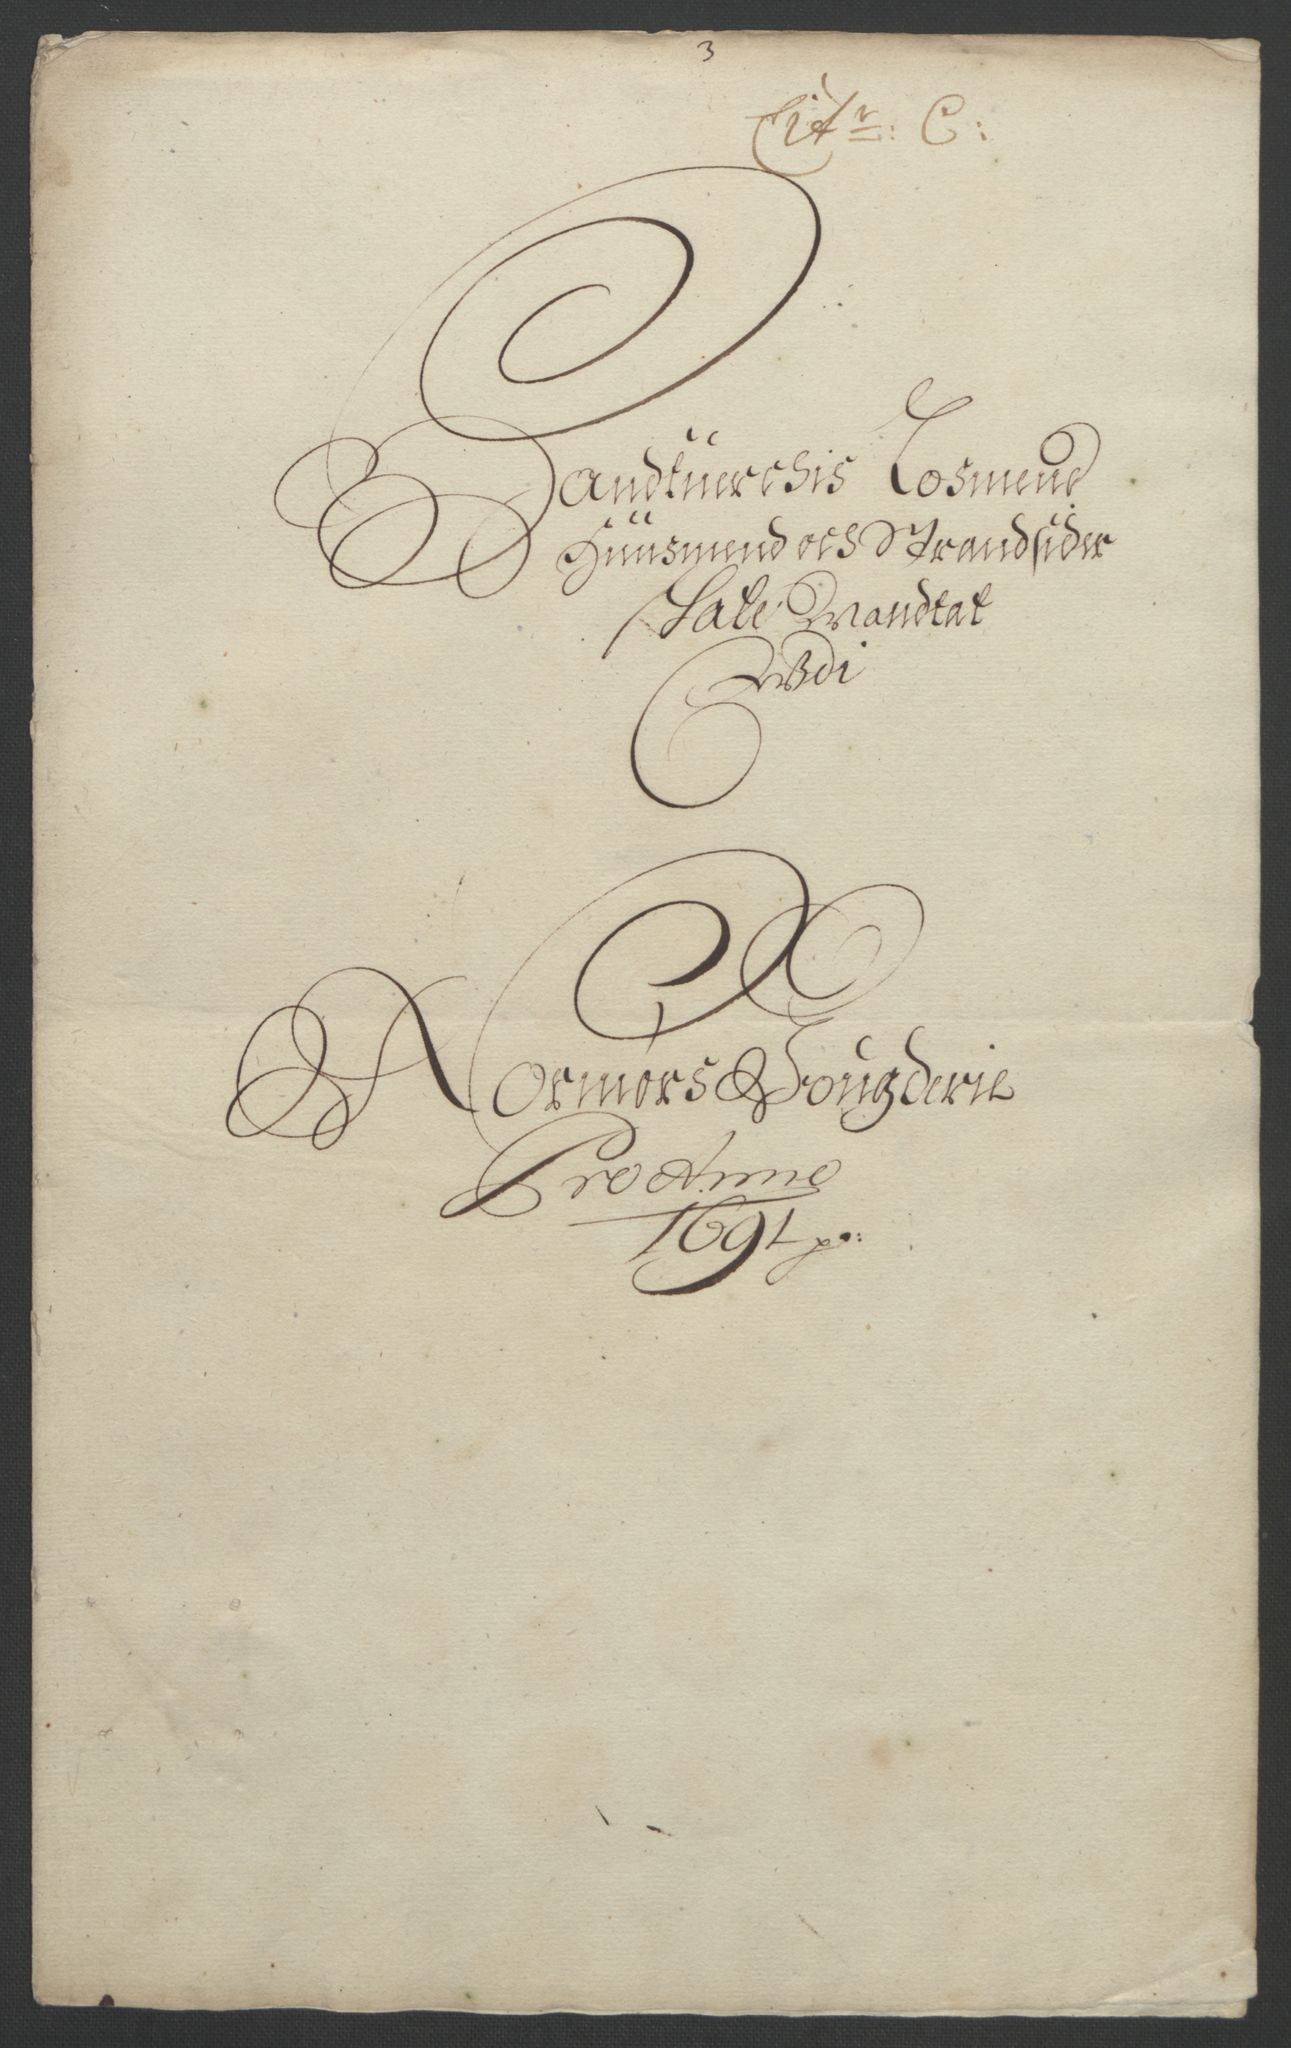 3
Litr: C:
Handtuerchis Losmend
Huusmend och Strandsider
Sale Mandtal
Udi
Normørs Fougderie
Pro Anno
1691 p: